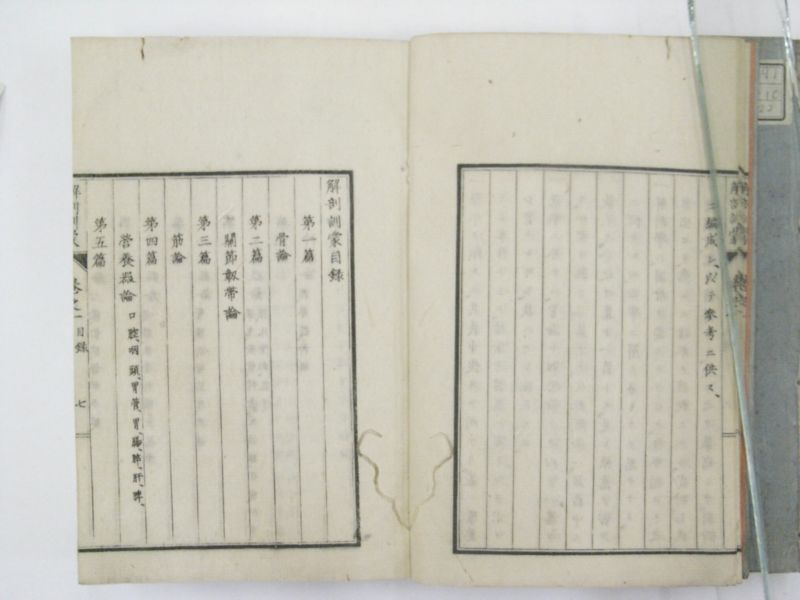 ニ編成シ以テ參考ニ供ス、
解剖訓蒙目録
第一篇
骨論
第二篇
關節靱帶論
第三篇
筋論
第四篇
營養器論 口腔、咽頭、胃管、胃、腸、膵、肝、脾、
第五篇
解剖訓蒙 卷之一 目録 七